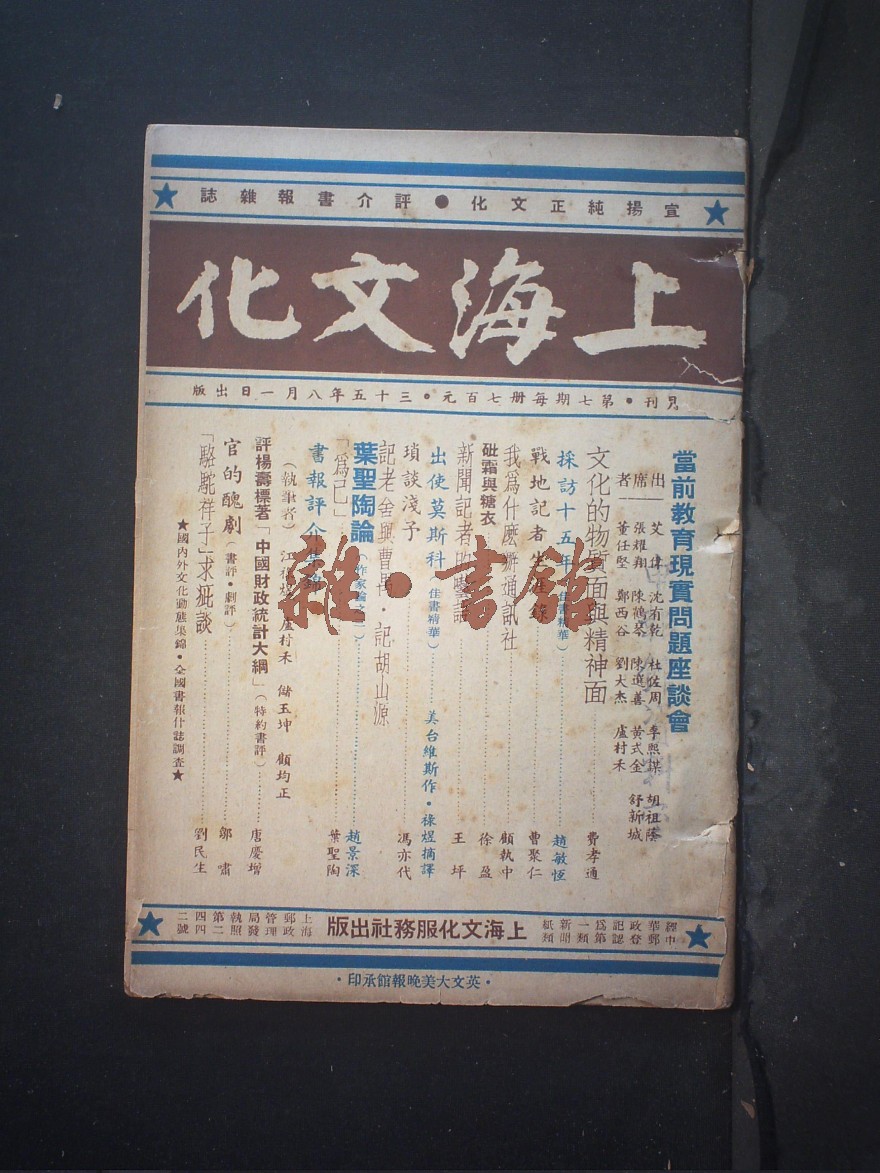 宣揚純正文化●評介書報雜誌
上海文化
月刊・第七期每册七百元・三十五年八月一日出版
當前教育現實問題座談會
出席者
艾偉 沈有乾 杜佐周 季熙謀 胡祖蔭
張耀翔 陳鶴琴 陳選善 黃式金 舒新城
董任堅 鄭西谷 劉大杰 盧村禾
文化的物質面與精神面……費孝通
採訪十五年（佳書精華）……趙敏恆
戰地記者生涯錄……曹聚仁
我爲什麽辦通訊社……顧執中
砒霜與糖衣……徐盈
新聞記者的……王坪
出使莫斯科（佳書精華）美台維斯作・祿煜摘譯
瑣談淺予……馮亦代
記老舍與曹禺・記胡山源
葉聖陶論（作家論之）……趙景深
「爲己」……葉聖陶
書報評介集錦
（執筆者）江 盧村禾 儲玉坤 顧均正
評楊壽標著「中國財政統計大綱」（特約書評）……唐慶增
官的醜劇（書評・劇評）……鄔嘯
「駱駝祥子」求疵談……劉民生
★國內外文化動態集錦・全國書報什誌調查★
雜・書館
經中華郵政登記認爲第一類新聞紙類
上海文化服務社出版
上海郵政管理局發執照第二四四二號
・英文大美晚報館承印・